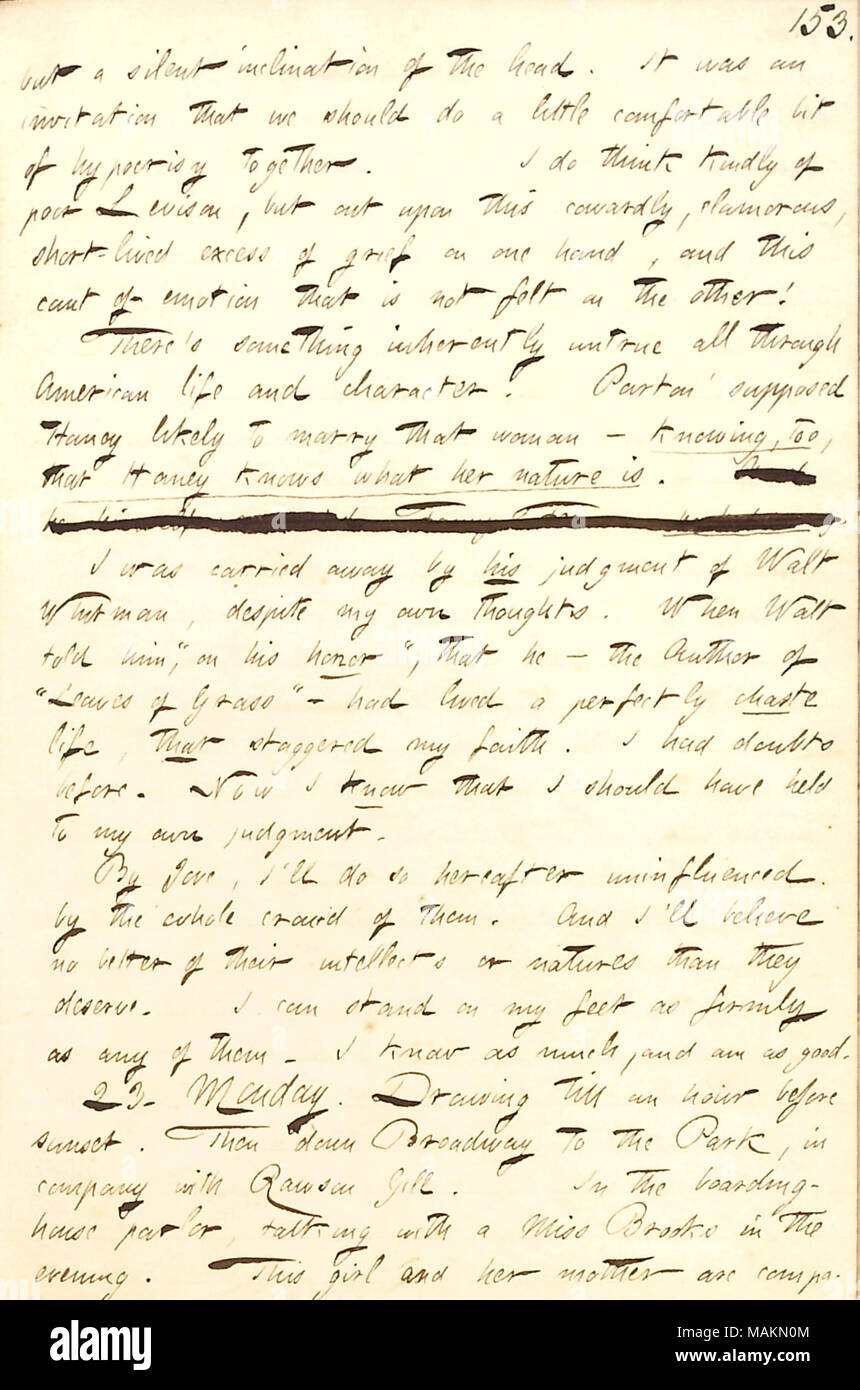 153.
but a silent inclination of the head. It was an
invitation that we should do a little comfortable bit
of hypocrisy together. I do think kindly of
poor Levison, but out upon this cowardly, clamorous,
short-lived excess of grief on one hand, and this
cant of emotion that is not felt on the other!
There's something inherently untrue all through
American life and character. Parton supposed
Haney likely to marry that woman — knowing, too,
that Haney knows what her nature is.
I was carried away by his judgment of Walt
Whitman, despite my own thoughts. When Walt
told him, "on his honor", that he — the Author of
"Leaves of Grass" — had lived a perfectly chaste
life, that staggered my faith. I had doubts
before. Now I know that I should have held
to my own judgment.
By Jove, I'll do so hereafter uninfluenced
by the whole crowd of them. And I'll believe
no better of their intellects or natures than they
deserve. I can stand on my feet as firmly
as any of them — I know as much, and am as good.
23. Monday. Drawing till an hour before
sunset. Then down Broadway to the Park, in
company with Rawson Gill. In the boarding-
house parlor, talking with a Miss Brooks in the
evening. This girl and her mother are compa-
alamy
Image ID: MAKN0M
www.alamy.com